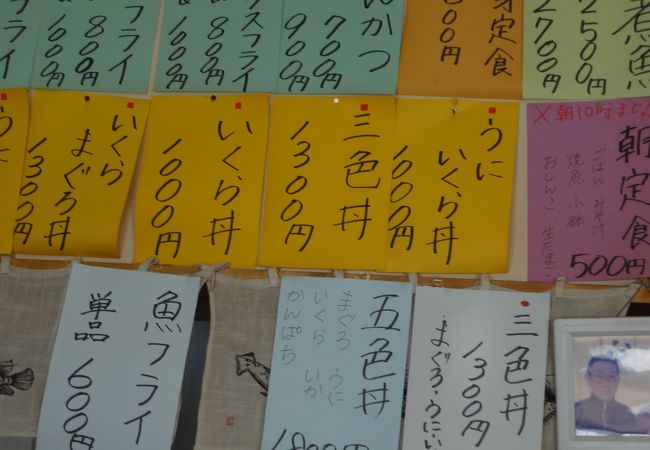 フライ
800円
1000円
スフライ
900円
1000円
んかつ
700円
900円
定食
800円
煮魚
2500円
2700円
うに
いくら
まぐろ丼
1300円
いくら丼
1000円
三色丼
1300円
うに
いくら丼
※朝10時まで
朝定食
ごはん みそ汁
焼魚 小鉢
おしんこ 生たまご
500円
魚フライ
単品 600円
五色丼
まぐろ・うに
いくら・いか
かんぱち
三色丼
1300円
まぐろ・うに・い